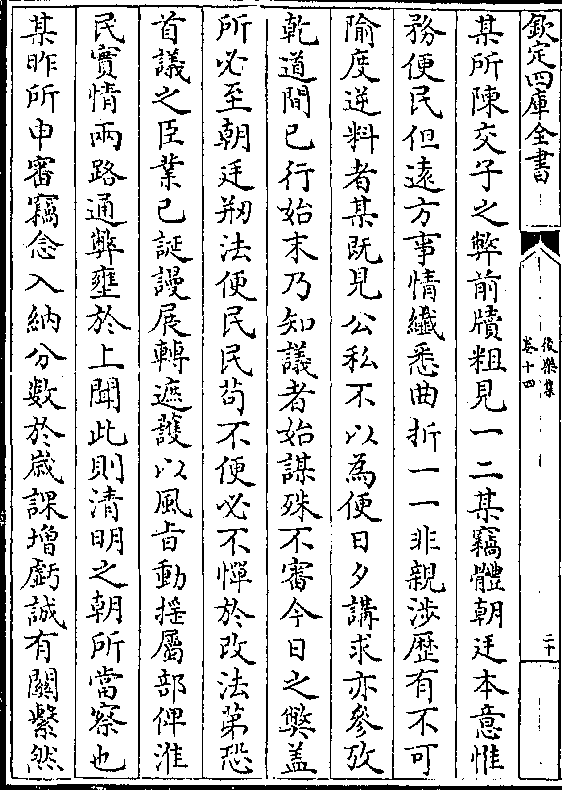 欽定四庫全書
後樂集
卷十四
二十
某所陳交子之弊前牘粗見一二某竊體朝廷本意惟
務便民但遠方事情纎悉曲折一一非親涉歴有不可
隃度逆料者某既見公私不以為便日夕講求亦參攷
乾道間已行始末乃知議者始謀殊不審今日之弊盖
所必至朝廷剏法便民民茍不便必不憚於改法第恐
首議之臣業已誕謾展轉遮護以風㫖動揺屬部俾淮
民實情兩路通弊壅於上聞此則清明之朝所當察也
某昨所申審竊念入納分數於嵗課增虧誠有關繫然